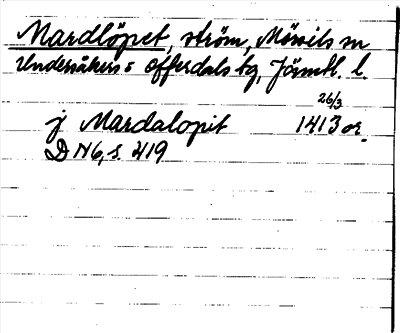 Mardlöpet, ström, Mörsils sn
Undersåkers o Offerdals tg, Jämtl. l.
26/3
j Mardalopit 1413 or.
DN 16, s. 419